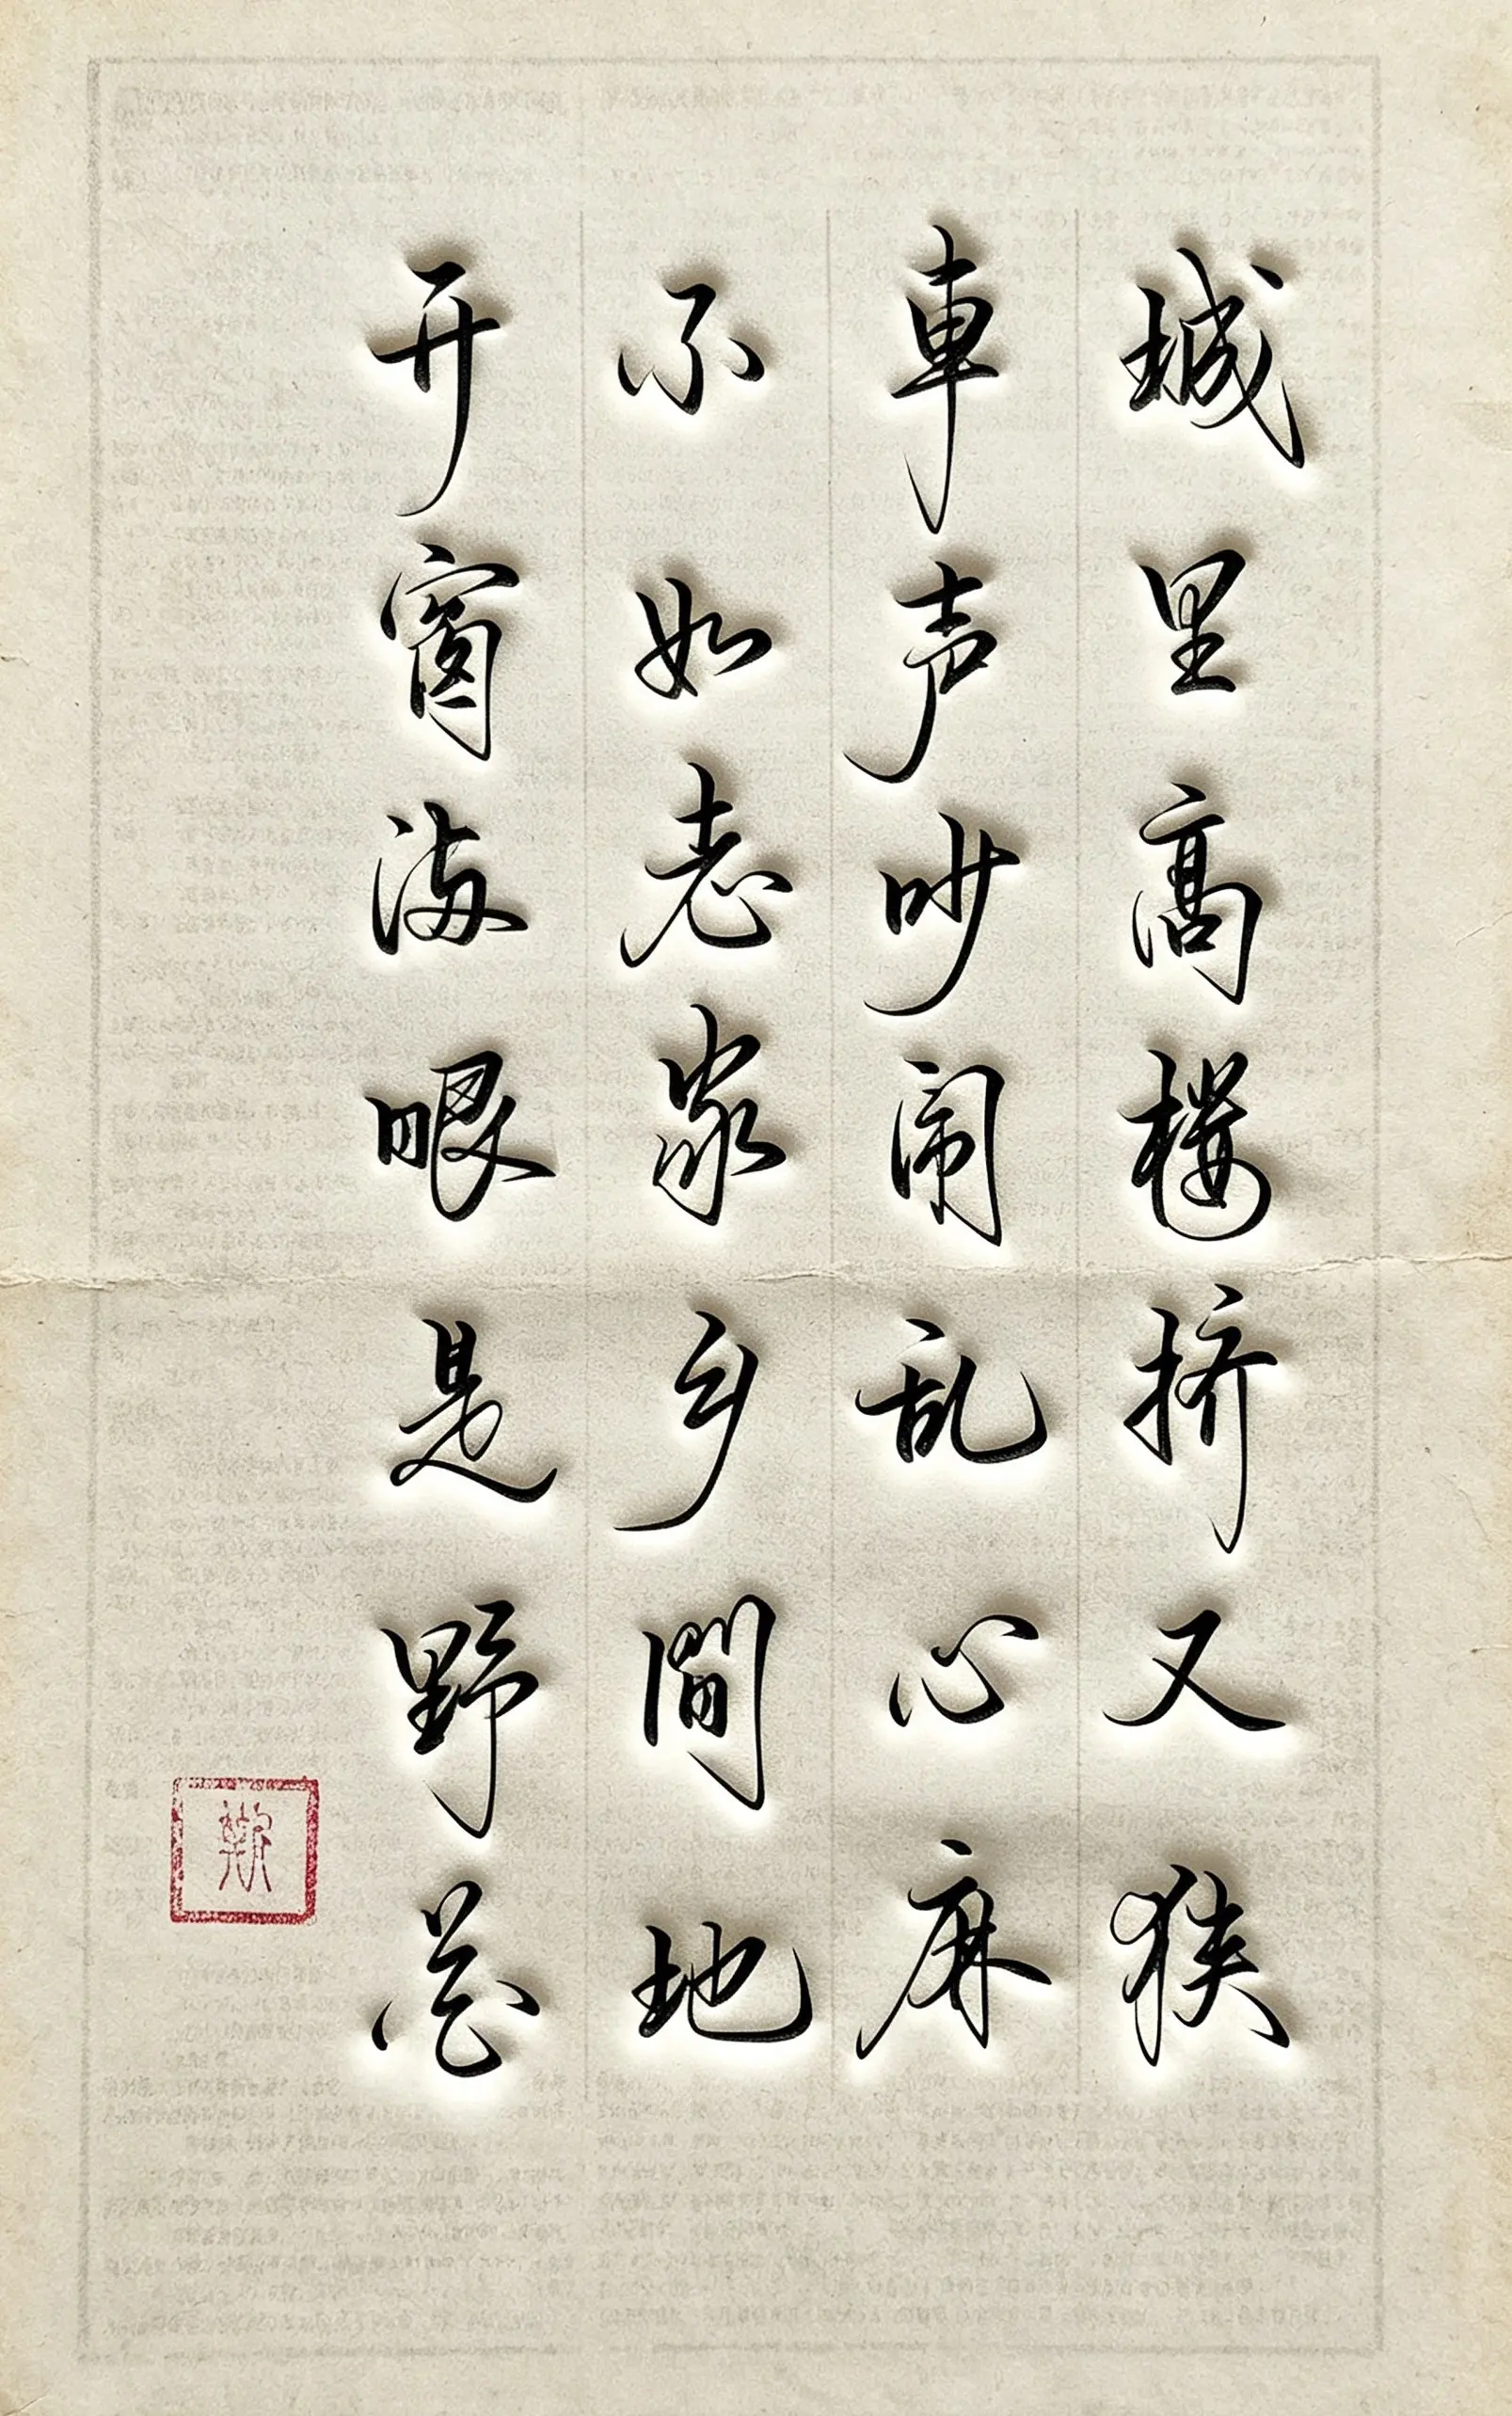 城里高楼挤又狭
車声吵闹乱心麻
不如老家乡間地
开窗满眼是野花